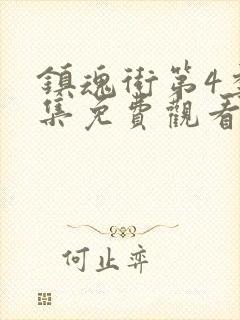 鎮魂街第4季
集免費觀看
何止弈